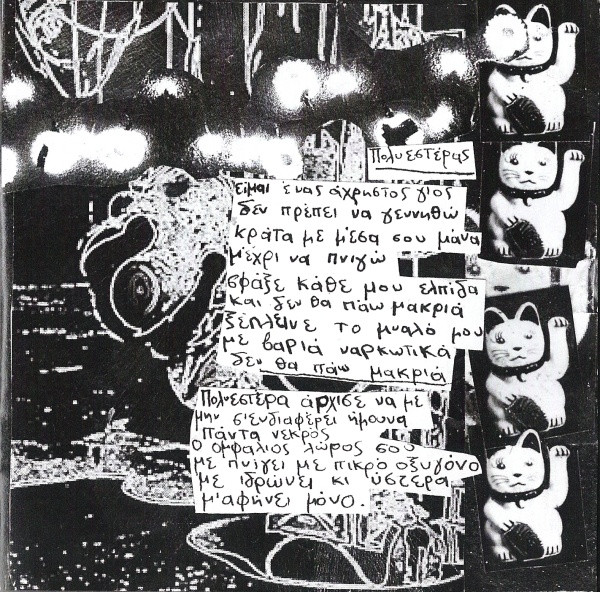 Πολυεστέρας
είμαι ένας άχρηστος γιος
δεν πρέπει να γεννηθώ
κράτα με μέσα σου μάνα
μέχρι να πνιγώ
σφάξε κάθε μου ελπίδα
και δεν θα πάω μακριά
ξέπλενε το μυαλό μου
με βαριά ναρκωτικά
δεν θα πάω μακριά
Πολυεστέρα άρχισε να με
μην σ'ενδιαφέρει ήμουνα
πάντα νεκρός
ο ομφάλιος λώρος σου
με πνίγει με πικρό οξυγόνο
με ιδρώνει κι ύστερα
μ'αφήνει μόνο.